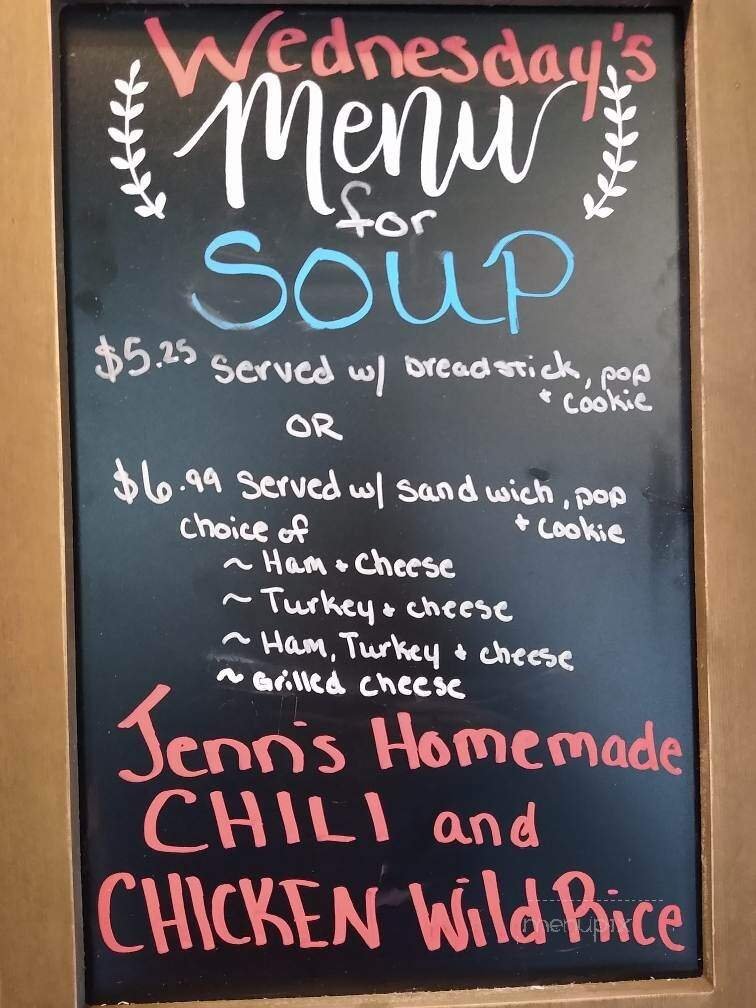 Wednesday's
Menu
for
SOUP
$5.25 Served w/ breadstick, pop
+ cookie
OR
$6.99 Served w/ sandwich, pop
choice of + cookie
~ Ham + Cheese
~ Turkey + cheese
~ Ham, Turkey + cheese
~ Grilled cheese
Jenn's Homemade
CHILI and
CHICKEN Wild Rice
menupix